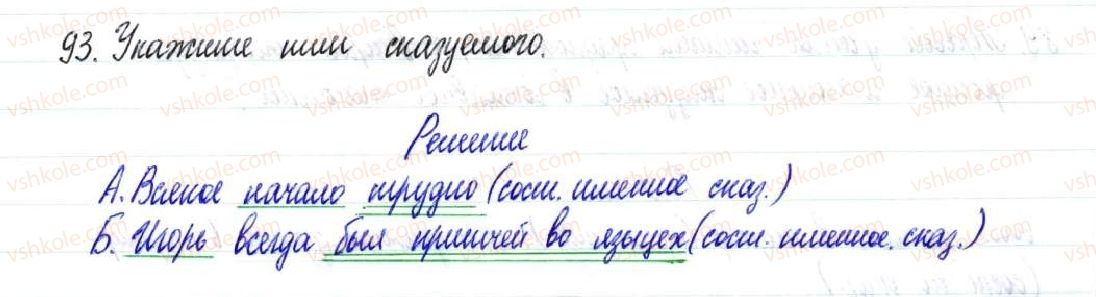 93. Укажите тип сказуемого.
Решение
А. Всякое начало трудно (сост. именное сказ.)
Б. Игорь всегда был притчей во языцех (сост. именное. сказ.)